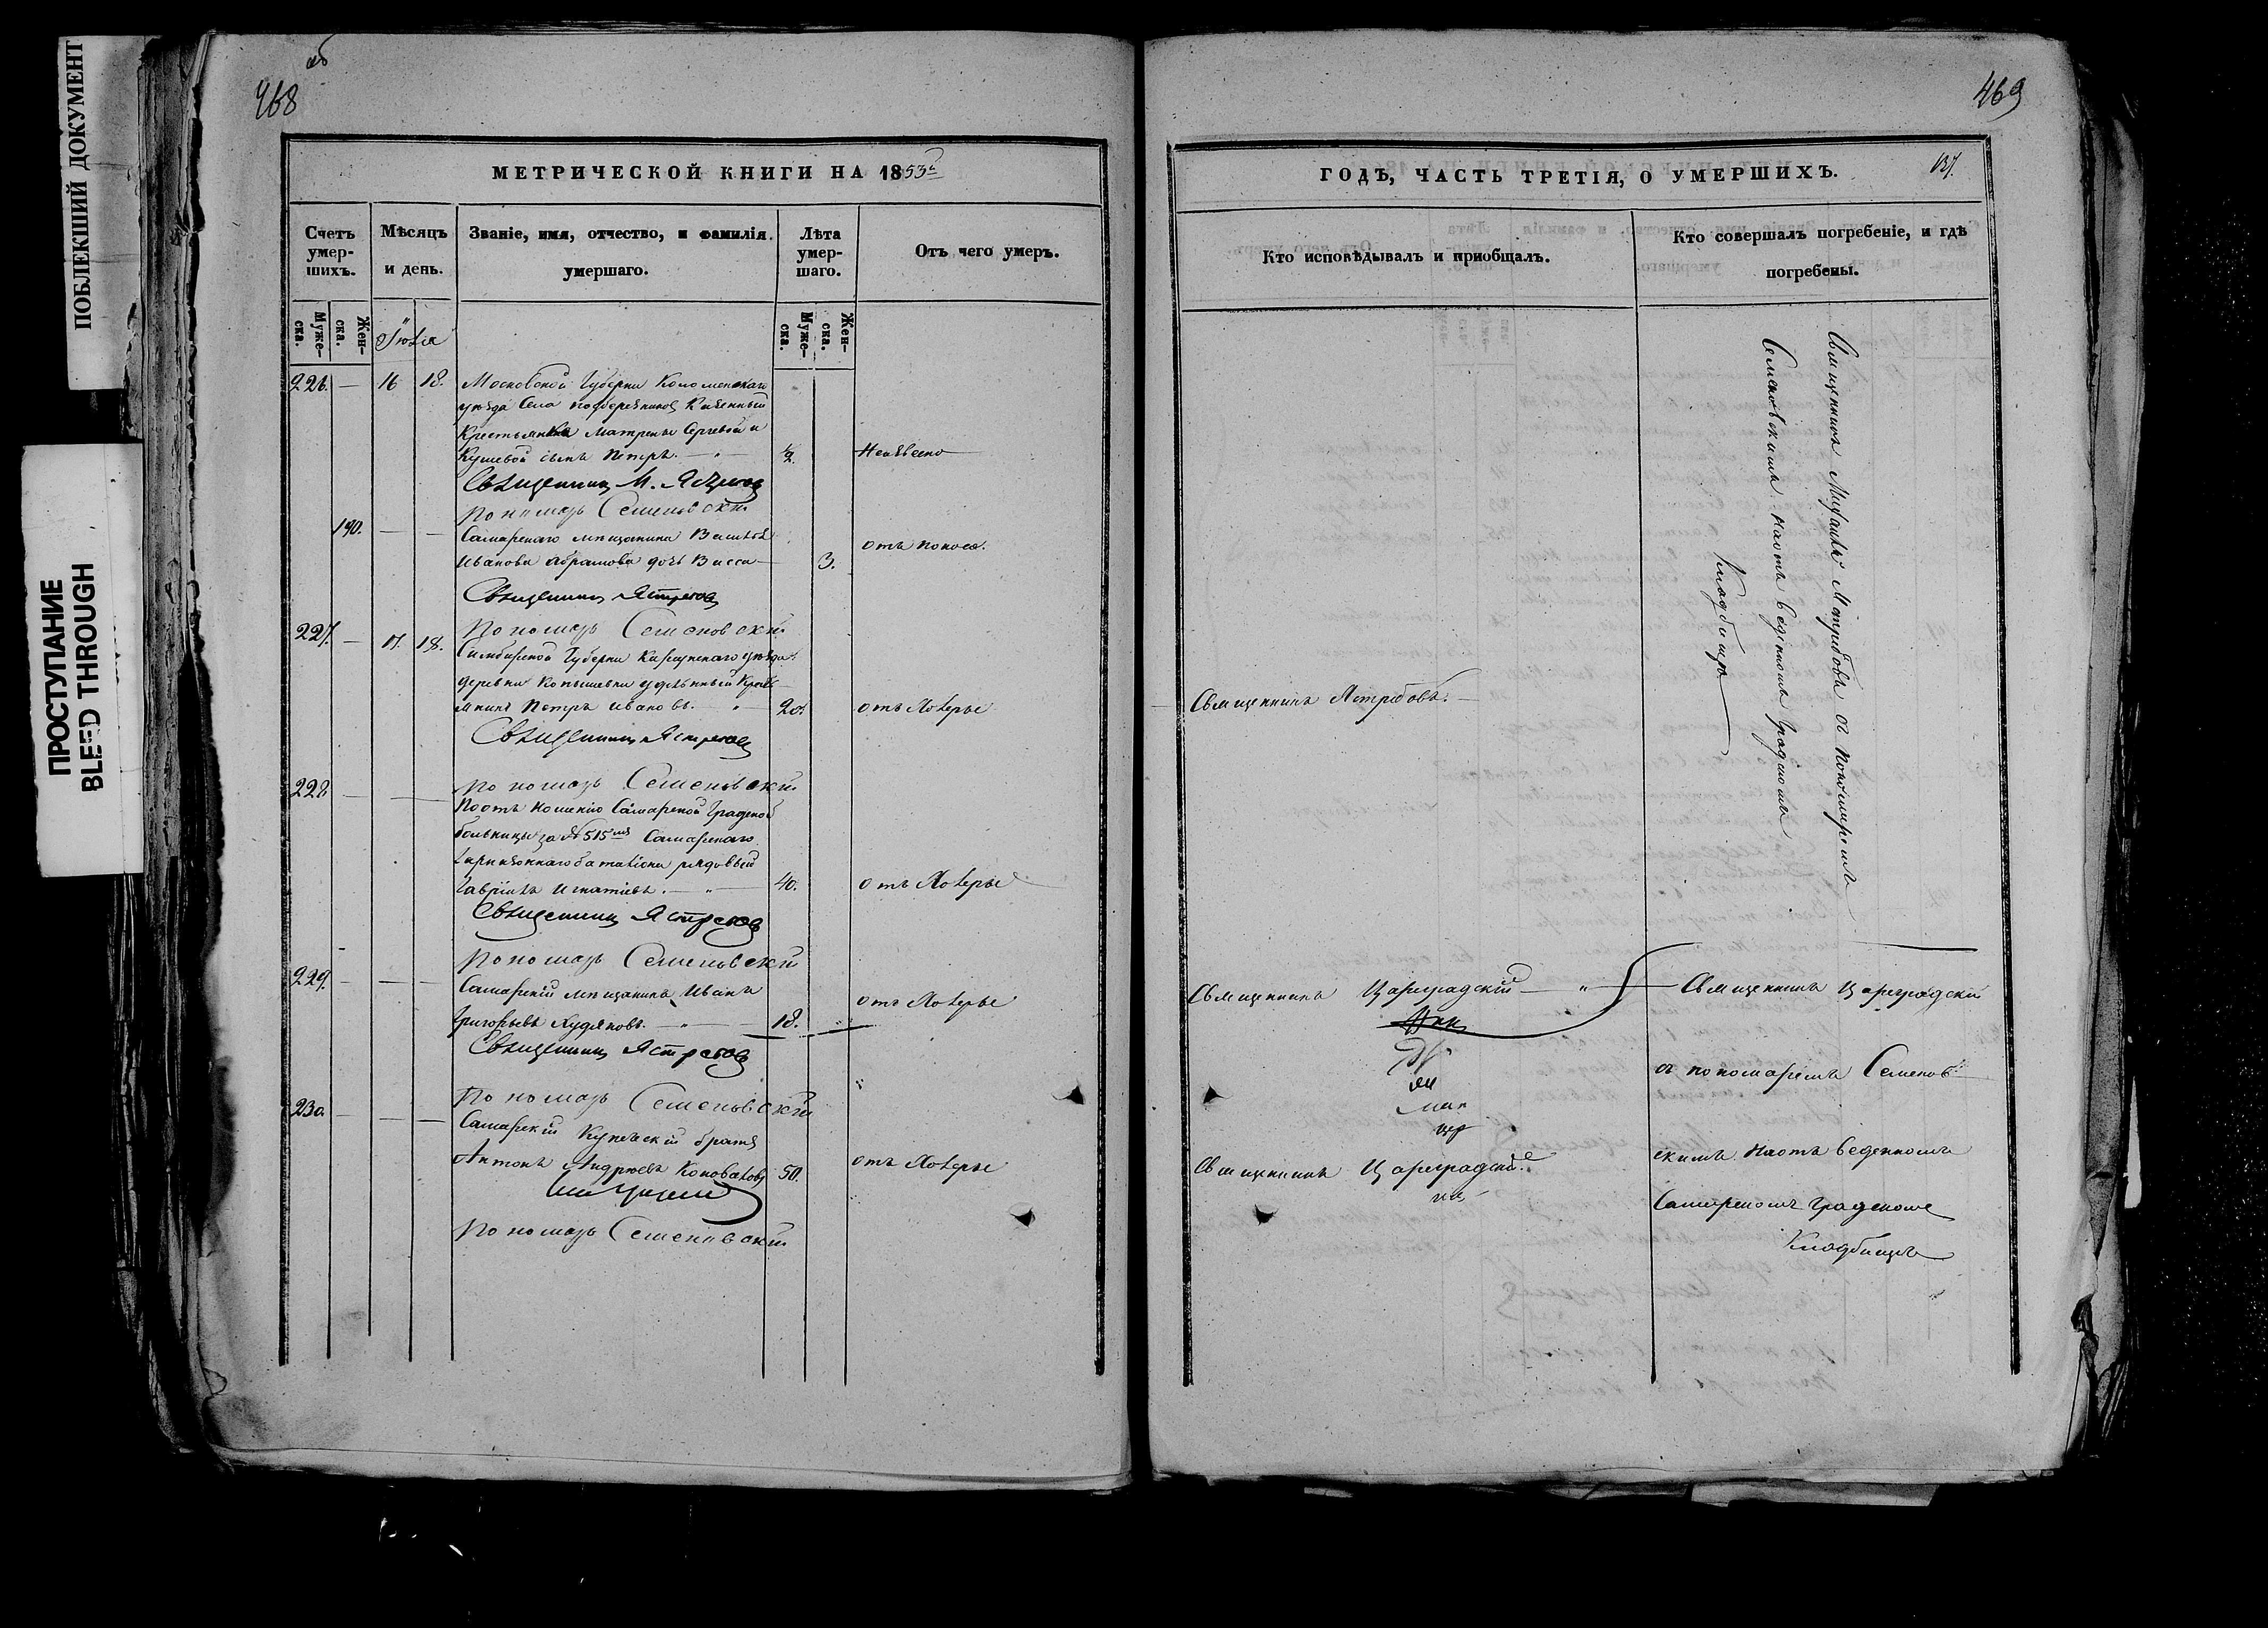 ПОБЛЕКШИЙ ДОКУМЕНТ
ПРОСТУПАНИЕ
BLEED THROUGH
468
об
МЕТРИЧЕСКОЙ КНИГИ НА 1853
Счетъ умер-шихъ.
Муже-ска.
Жен-ска.
Мѣсяцъ и день.
Званіе, имя, отчество, и фамилія умершаго.
Лѣта умер-шаго.
Муже-ска.
Жен-ска.
Отъ чего умеръ.
Іюля
226. — 16 18. Московской Губерніи Коломенскаго
уѣзда Села
Крестьянки Матрены Сергеевой
сынъ Петръ. — " — ½.
Священникъ М. Ястребовъ
Пономарь Семеновскій
190. — — Самарскаго мѣщанина Василья
Иванова Абрамова дочь Васса — 3. отъ поноса.
Священникъ Ястребовъ
Пономарь Семеновскій
227. — 17. 18. Симбирской Губерніи Карсунскаго уѣзда
деревни Копышевки удѣльный Крестья
янинъ Петръ Ивановъ. — " — 20. отъ Холеры
Священникъ Ястребовъ
Пономарь Семеновскій
228 — — По отношенію Самарской Градской
больницы за № 515 Самарскаго
гарнизоннаго баталіона рядовый
Гавріилъ Игнатьевъ. — " — 40. отъ Холеры
Священникъ Ястребовъ
Пономарь Семеновскій
229. — — — Самарскій мѣщанинъ Иванъ
Григорьевъ Худяковъ. — " — 18. отъ Холеры
Священникъ Ястребовъ
Пономарь Семеновскій
230. — — — Самарскій Купеческій братъ
Антонъ Андреевъ Коноваловъ 50. отъ Холеры
Пономарь Семеновскій
469
137.
ГОДЪ, ЧАСТЬ ТРЕТІЯ, О УМЕРШИХЪ.
Кто исповѣдывалъ и приобщалъ.
Кто совершалъ погребеніе, и гдѣ погребены.
Священникъ Михаилъ Ястребовъ съ Пономаремъ
Семеновскимъ на отведенномъ градскомъ
Кладбищѣ
Священникъ Ястребовъ. —
Священникъ Цареградскій — " —
Священникъ Цареградскій
съ пономаремъ Семенов
скимъ на отведенномъ
Священникъ Цареградскій
Самарскомъ градскомъ
Кладбищѣ